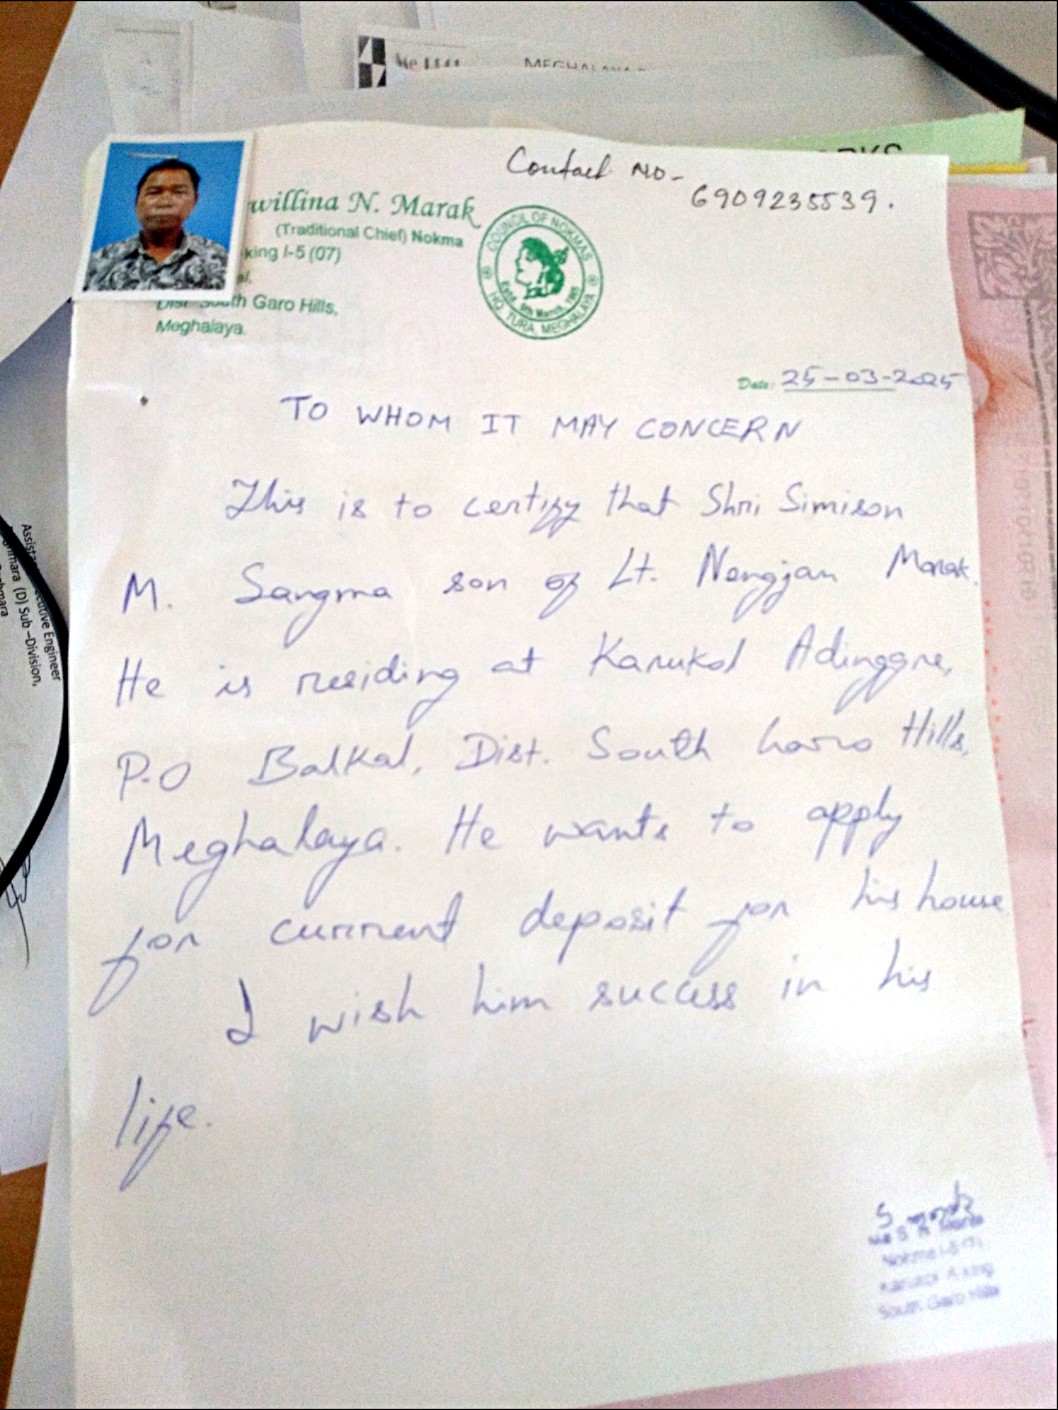 MEGHALAYA
Contact No-
6909235539.
willina N. Marak
(Traditional Chief) Nokma
king I-5 (07)
al.
Dist. South Garo Hills,
Meghalaya.
COUNCIL OF NOKMAS
HQ. TURA, MEGHALAYA
Date: 25-03-2025
TO WHOM IT MAY CONCERN
This is to certify that Shri Simison
M. Sangma son of Lt. Nengjan Marak.
He is residing at Karukol Adinggre,
P.O Balkal, Dist. South Garo Hills,
Meghalaya. He wants to apply
for current deposit for his house
I wish him success in his
life.
Nokma I-5
South Garo Hills
Executive Engineer
(D) Sub-Division,